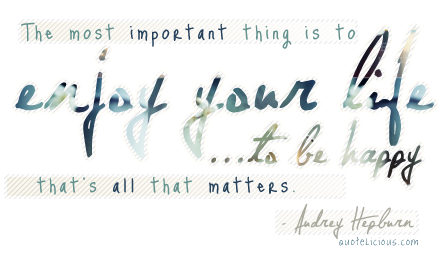 The most important thing is to
enjoy your life
...to be happy
that's all that matters.
- Audrey Hepburn
quotelicious.com